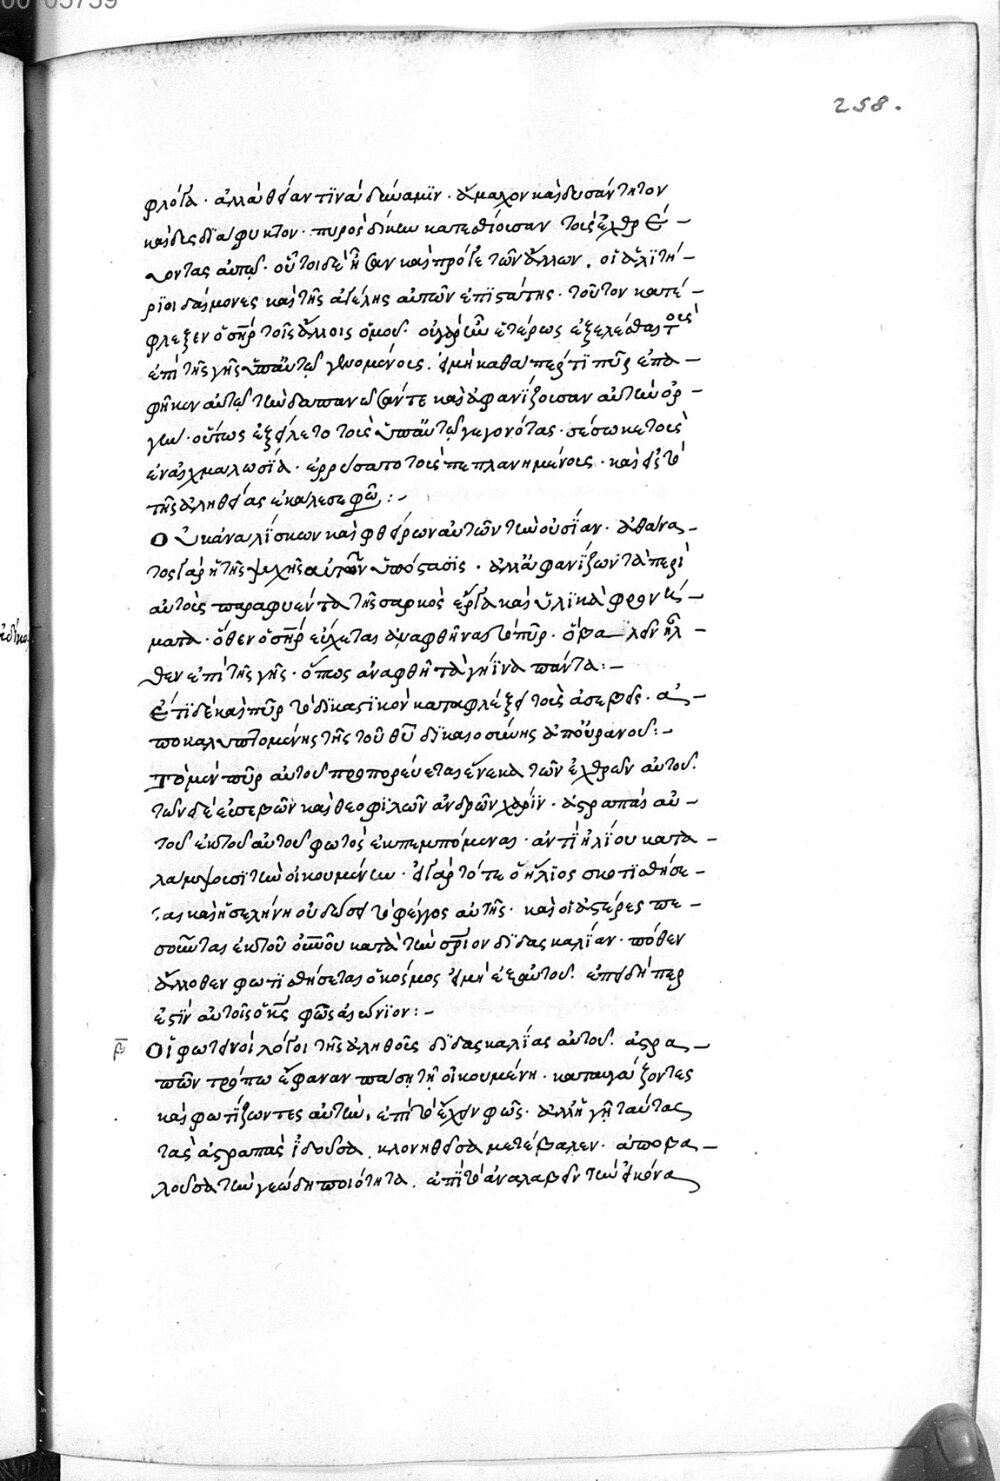 258.
φλόγα· ἀλλὰ θείαν τινὰ δύναμιν· ἄμαχον καὶ δυσάντητον
καὶ δυσδιάφυκτον· πυρὸς δίκην κατεσθίουσαν τοὺς ἐχθραί-
νοντας αὐτῷ· οὗτοι δὲ ἦσαν καὶ πρό γε τῶν ἄλλων, οἱ ἀλιτή-
ριοι δαίμονες καὶ τῆς ἀγέλης αὐτῶν ἐπιστάτης· τοῦτον κατέ-
φλεξεν ὁ σηρ τοῖς ἄλλοις ὁμοῦ· οὐ γὰρ ἦν ἑτέρως ἐξελέσθαι τοὺς
ἐπὶ τῆς γῆς ὑπ' αὐτῷ γενομένους. εἰ μὴ καθάπερ τι πῦρ ἐπα-
φῆκεν αὐτῷ τὴν δαπανῶσάν τε καὶ ἀφανίζουσαν αὐτὸν ὀρ-
γήν· οὕτως ἐξείλετο τοὺς ὑπ' αὐτῷ γεγονότας· σέσωκε τοὺς
ἐν αἰχμαλωσίᾳ· ἐρρύσατο τοὺς πεπλανημένους· καὶ εἰς τὸ
τῆς ἀληθείας ἐκάλεσε φῶς:-
Οὐκ ἀναλίσκων καὶ φθείρων αὐτῶν τὴν οὐσίαν· ἀθάνα-
τος γὰρ ἡ τῆς ψυχῆς αὐτῶν ὑπόστασις· ἀλλ' ἀφανίζων τὰ περὶ
αὐτοὺς παραφυέντα τῆς σαρκὸς ἔργα καὶ ὑλικὰ φρονή-
ματα· ὅθεν ὁ σηρ εὔχεται ἀναφθῆναι τὸ πῦρ· ὃ βαλεῖν ἦλ-
θεν ἐπὶ τῆς γῆς· ὅπως ἀναφθῇ τὰ γήϊνα πάντα:-
Ἔτι δὲ καὶ πῦρ τὸ δικαστικὸν καταφλέξει τοὺς ἀσεβεῖς· ἀ-
ποκαλυπτομένης τῆς τοῦ θυ δικαιοσύνης ἀπ' οὐρανοῦ:-
Τὸ μὲν πῦρ αὐτοῦ προπορεύεται ἕνεκα τῶν ἐχθρῶν αὐτοῦ.
τῶν δὲ εὐσεβῶν καὶ θεοφιλῶν ἀνδρῶν χάριν· ἀστραπαὶ αὐ-
τοῦ ἐκ τοῦ αὐτοῦ φωτὸς ἐκπεμπόμεναι· ἀντὶ ἡλίου κατα-
λάμψουσι τὴν οἰκουμένην· εἰ γὰρ τότε ὁ ἥλιος σκοτισθήσε-
ται καὶ ἡ σελήνη οὐ δώσει τὸ φέγγος αὐτῆς· καὶ οἱ ἀστέρες πε-
σοῦνται ἐκ τοῦ οὐνοῦ κατὰ τὴν σριον διδασκαλίαν· πόθεν
ἄλλοθεν φωτισθήσεται ὁ κόσμος εἰ μὴ ἐξ αὐτοῦ· ἐπειδήπερ
ἐστὶν αὐτοῖς ὁ κς φῶς αἰώνιον:-
β Οἱ φωτεινοὶ λόγοι τῆς ἀληθοῦς διδασκαλίας αὐτοῦ· ἀστρα-
πῶν τρόπῳ ἔφαναν πάσῃ τῇ οἰκουμένῃ· καταυγάζοντες
καὶ φωτίζοντες αὐτὴν, ἐπὶ τὸ ἔχειν φῶς· ἀλλ' ἡ γῆ ταύτας
τὰς ἀστραπὰς ἰδοῦσα, κλονηθεῖσα μετέβαλεν· ἀποβα-
λοῦσα τὴν γεώδη ποιότητα, ἐπὶ τὸ ἀναλαβεῖν τὴν εἰκόνα